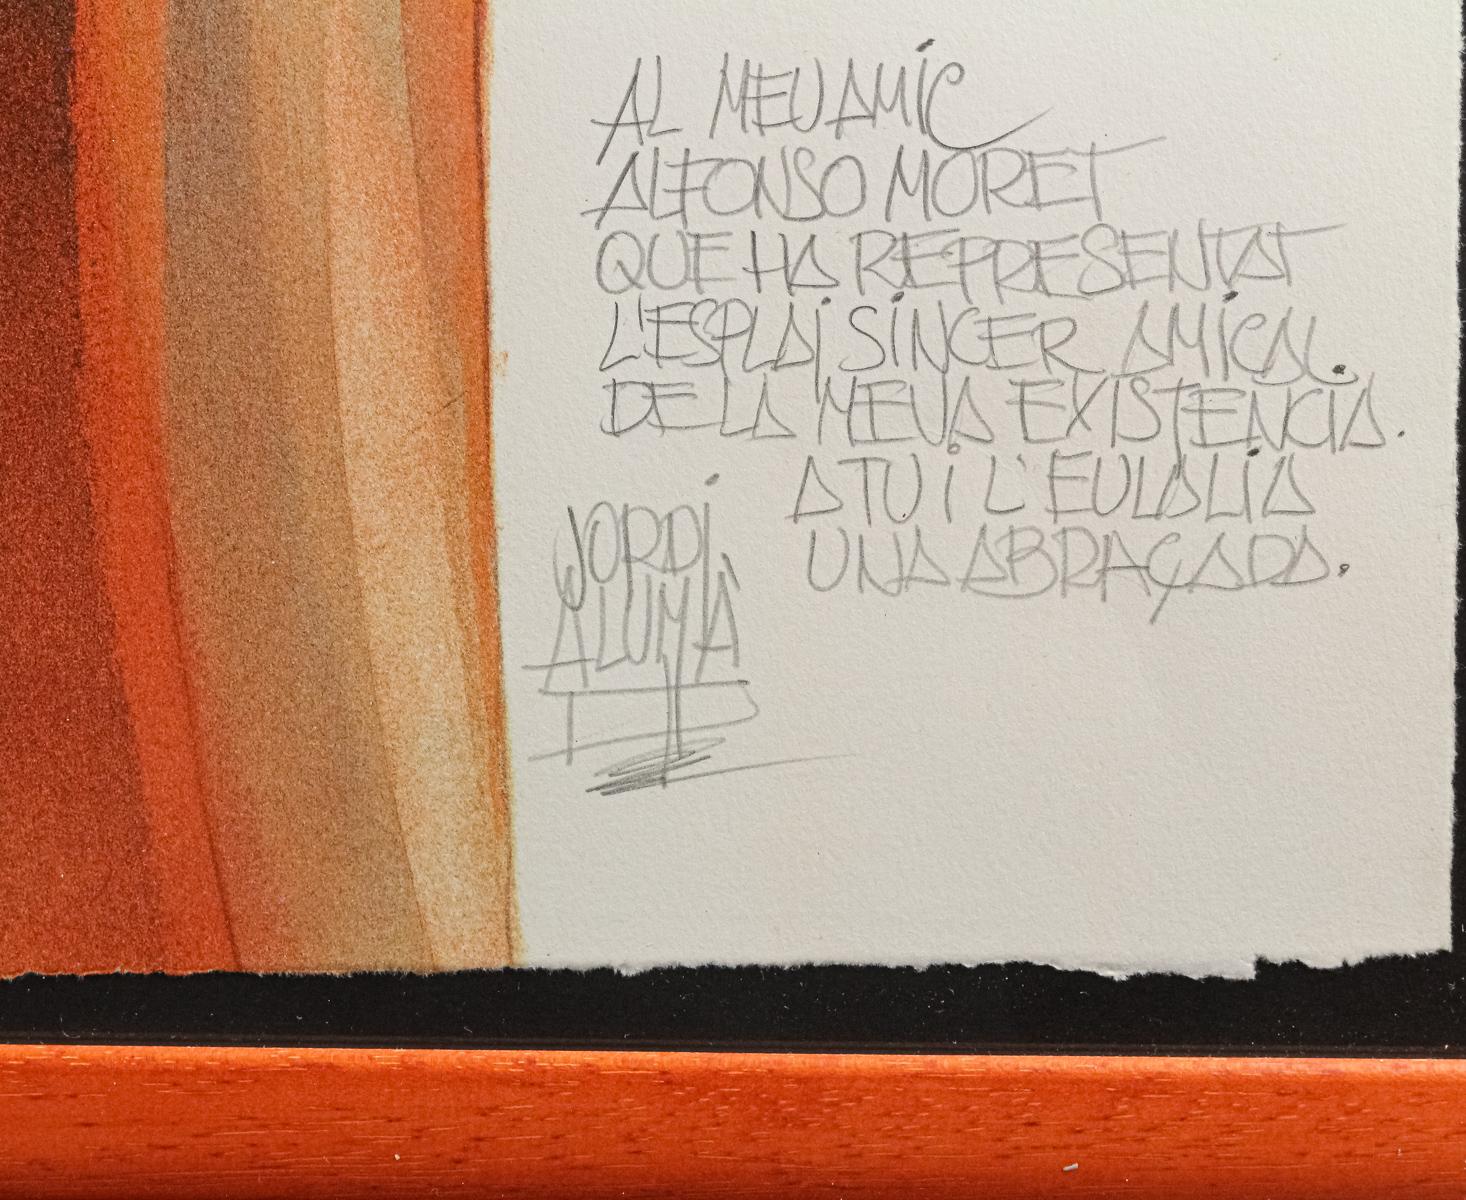 AL MEU AMIC
ALFONSO MORET
QUE HA REPRESENTAT
L'ESPLAI SINCER AMICAL
DE LA MEVA EXISTENCIA.
A TU I L'EULALIA
UNA ABRAÇADA.
JORDI
ALUMÀ